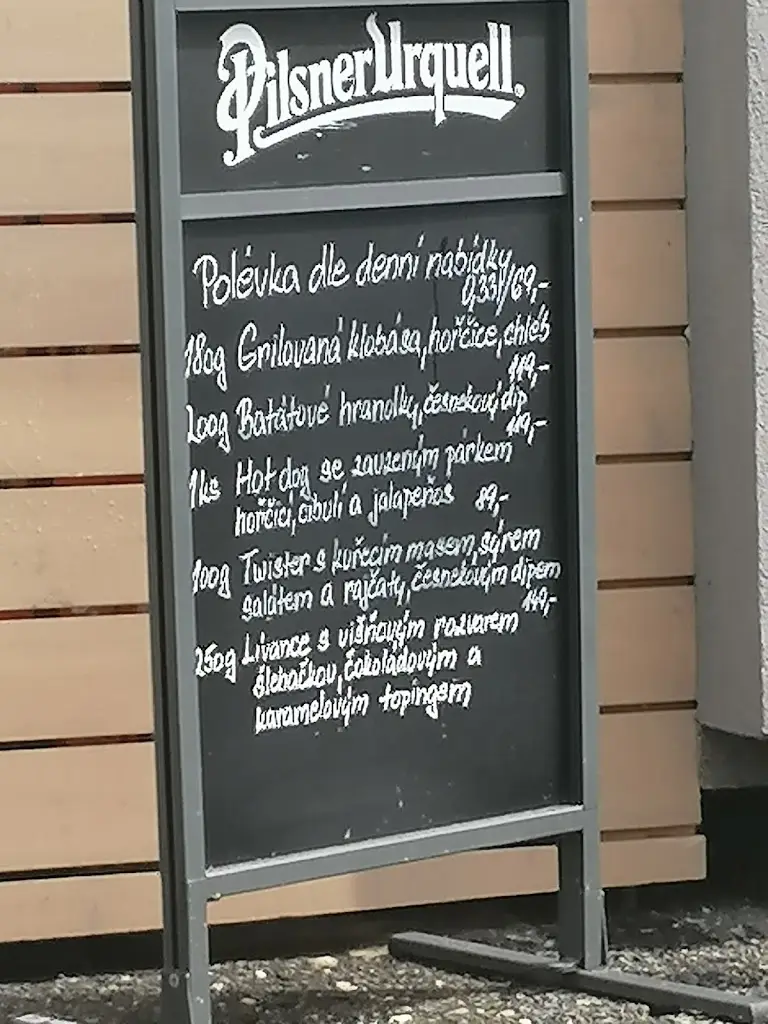 Pilsner Urquell
Polévka dle denní nabídky
0,33l/69,-
180g Grilovaná klobása, hořčice, chléb
119,-
200g Batátové hranolky, česnekový dip
119,-
1ks Hot dog se zauzeným párkem
hořčicí, cibulí a jalapeños 89,-
100g Twister s kuřecím masem, sýrem
salátem a rajčaty, česnekovým dipem
149,-
250g Lívance s višňovým rozvarem
šlehačkou, čokoládovým a
karamelovým topingem